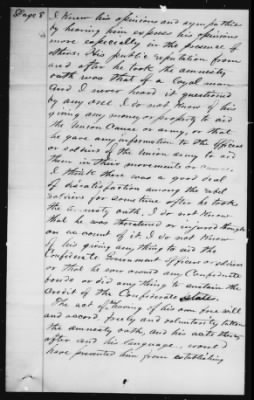 Page 8
I knew his opinions and sympathies
by hearing him express his opinions
more especially in the presence of
others. His public reputation from
and after he took the amnesty
oath was that of a loyal man
And I never heard it questioned
by any one. I do not know of his
giving any money or property to aid
the Union Cause or army, or that
he gave any information to the officers
or soldiers of the Union army to aid
them in their movements or
I think there was a good deal
of dissatisfaction among the rebel
soldiers for some time after he took
the amnesty oath, I do not know
that he was threatened or injured though
on account of it. I do not know
of his giving any thing to aid the
Confederate Government officers or soldiers
or that he ever owned any Confederate
bonds or did any thing to sustain the
credit of the Confederate States.
The act of having of his own free will
and accord, freely and voluntarily taken
the amnesty oath, and his acts there
after and his language would
have prevented him from establishing